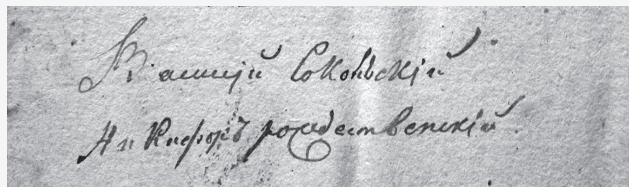 Василій Сокольскій
Никифоръ рождественскій